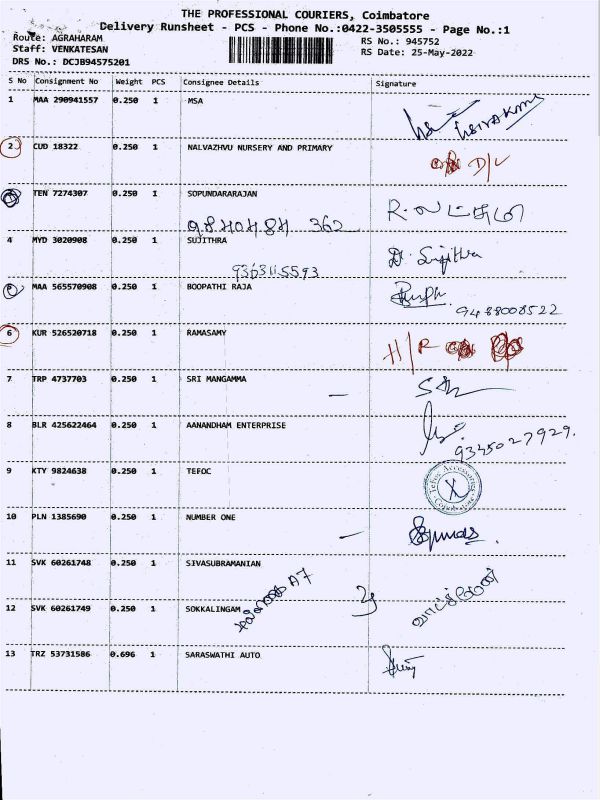 THE PROFESSIONAL COURIERS, Coimbatore
Delivery Runsheet - PCS - Phone No.:0422-3505555 - Page No.:1
Route: AGRAHARAM RS No.: 945752
Staff: VENKATESAN RS Date: 25-May-2022
DRS No.: DCJB94575201
S No Consignment No Weight PCS Consignee Details Signature
1 MAA 290941557 0.250 1 MSA
2 CUD 18322 0.250 1 NALVAZHVU NURSERY AND PRIMARY D/L
3 TEN 7274307 0.250 1 SOPUNDARARAJAN
9840484 362
4 MYD 3020908 0.250 1 SUJITHRA Sujithra
9363115593
5 MAA 565570908 0.250 1 BOOPATHI RAJA
9488008522
6 KUR 526520718 0.250 1 RAMASAMY H/R
7 TRP 4737703 0.250 1 SRI MANGAMMA
8 BLR 425622464 0.250 1 AANANDHAM ENTERPRISE
9345027929.
9 KTY 9824638 0.250 1 TEFOC Tefoc Accessories Coimbatore
10 PLN 1385690 0.250 1 NUMBER ONE
11 SVK 60261748 0.250 1 SIVASUBRAMANIAN
12 SVK 60261749 0.250 1 SOKKALINGAM
13 TRZ 53731586 0.696 1 SARASWATHI AUTO